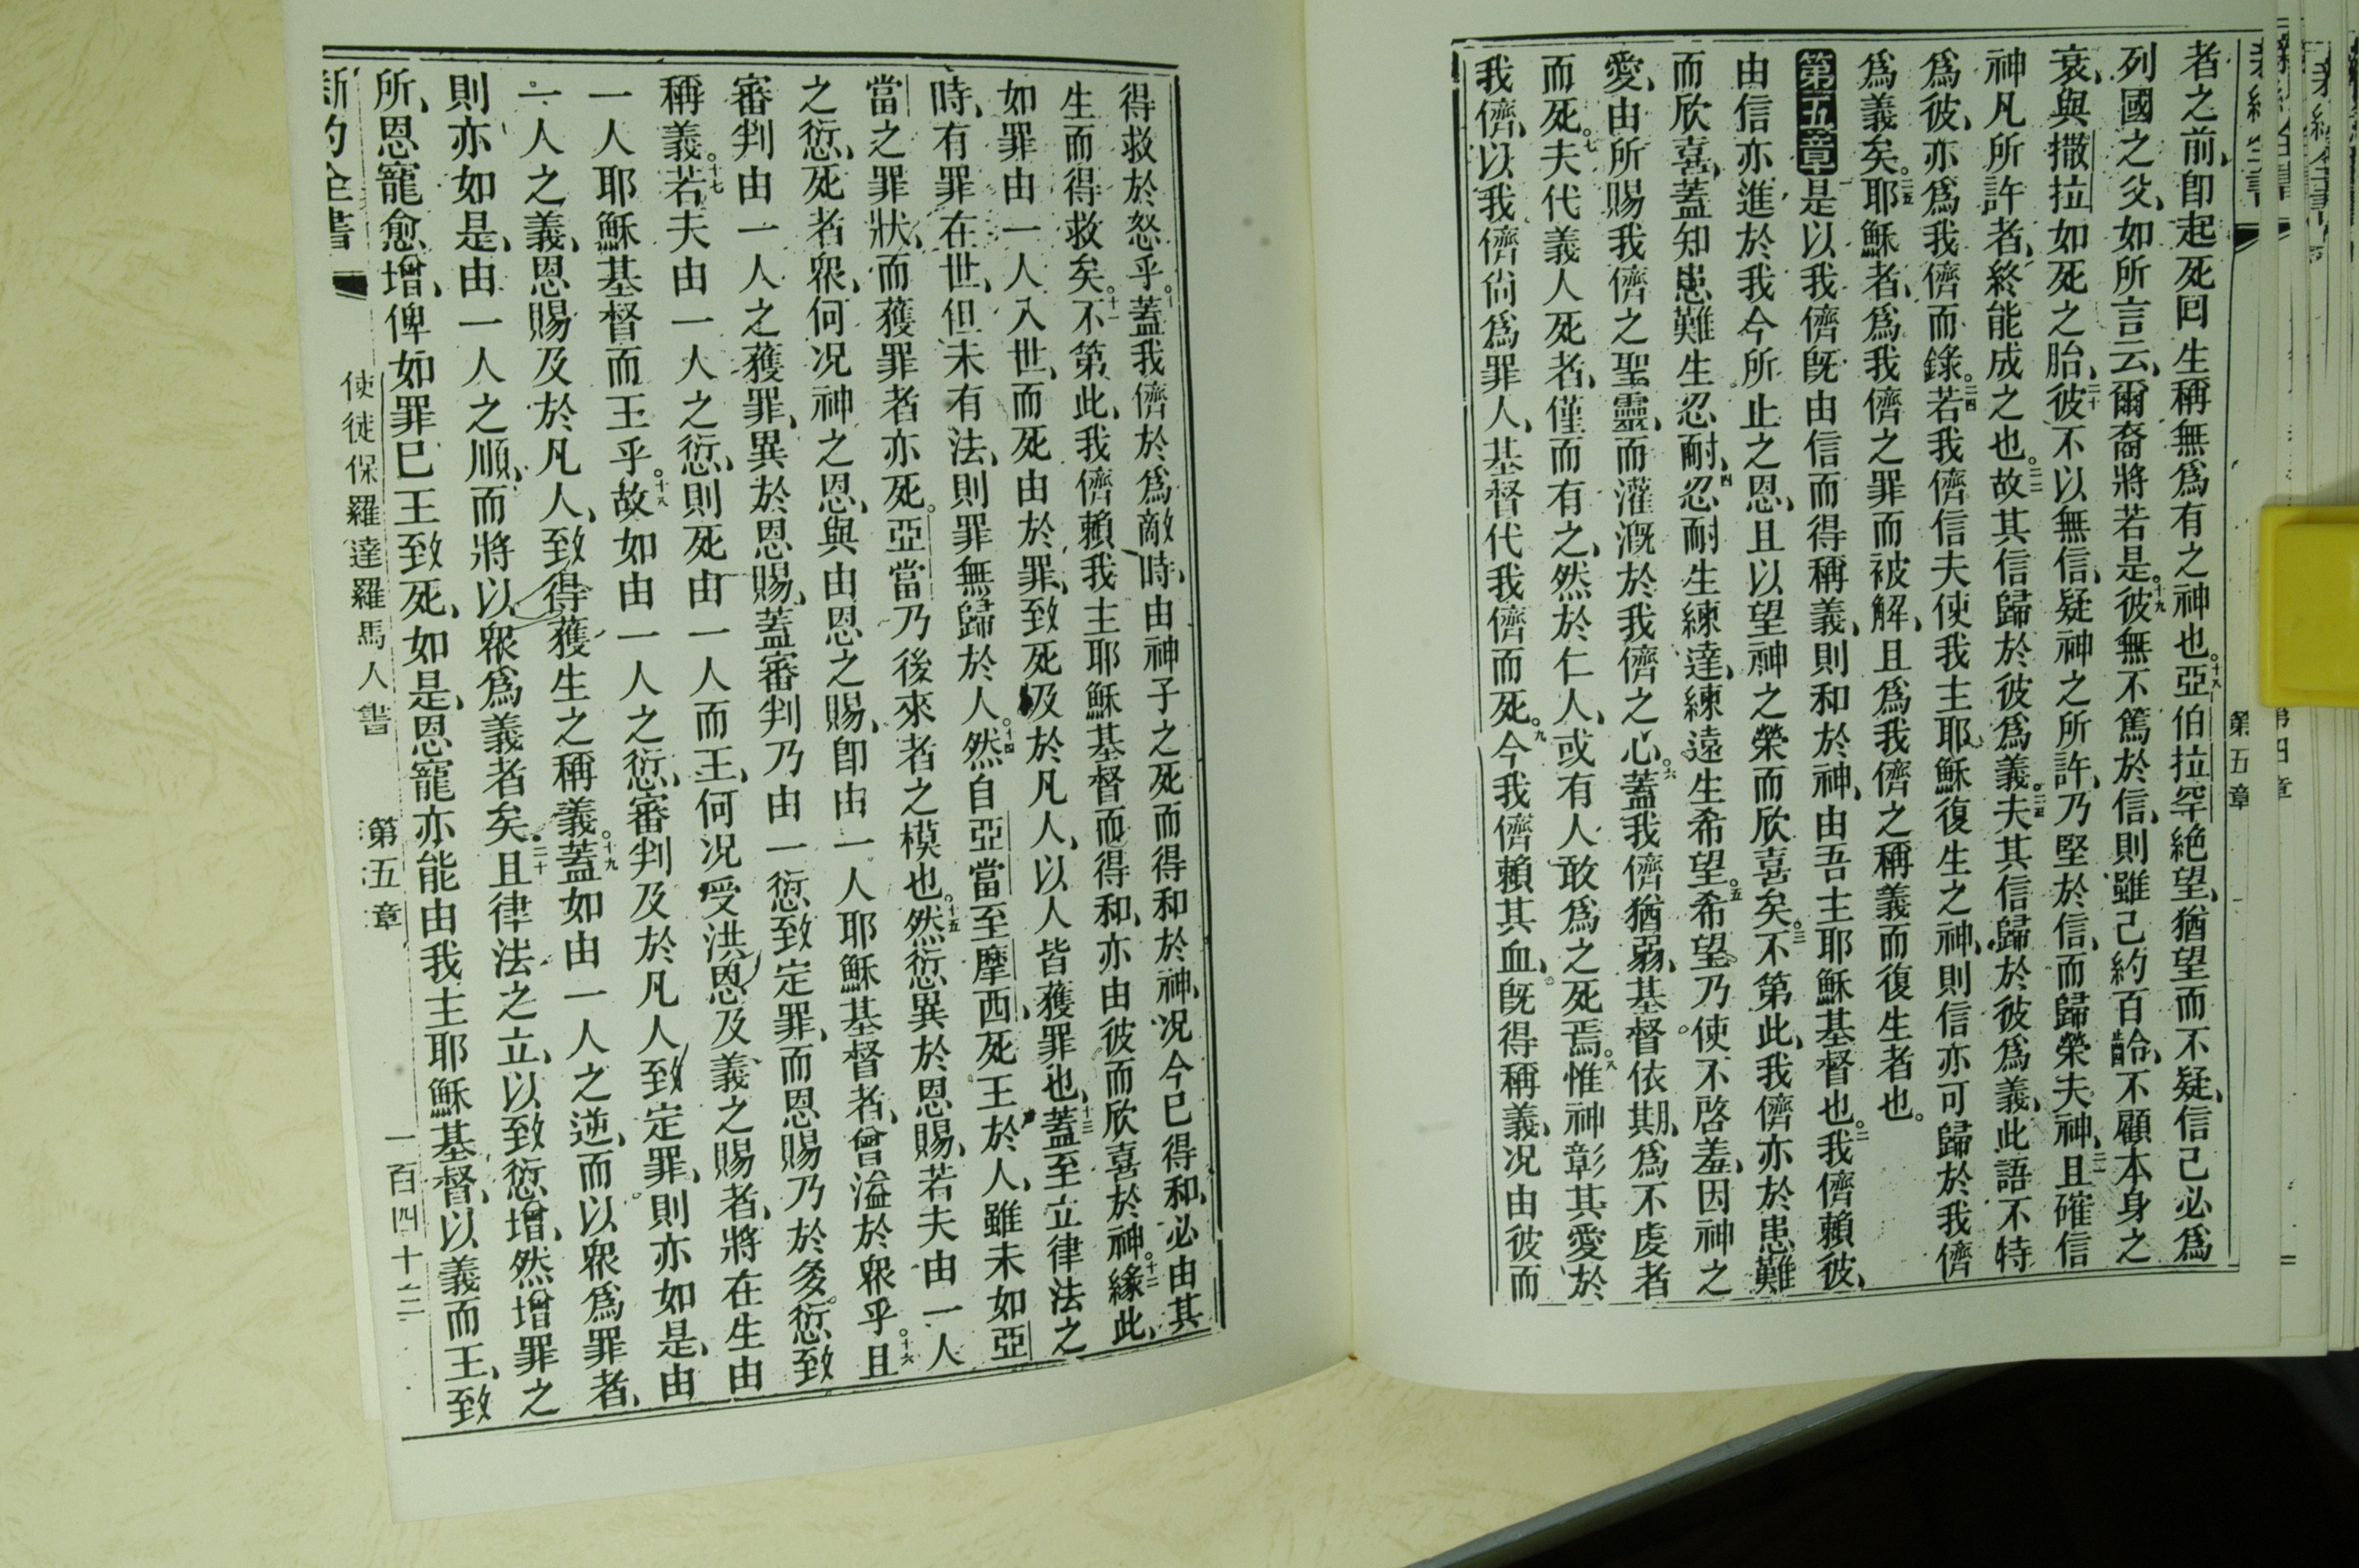 者之前、即起死回生稱無爲有之神也。十八亞伯拉罕絶望、猶望而不疑、信己必爲
列國之父、如所言云、爾裔將若是。十九彼無不篤於信、則雖己約百齡、不顧本身之
衰、與撒拉如死之胎、二十彼不以無信、疑神之所許、乃堅於信、而歸榮夫神、二一且確信
神凡所許者、終能成之也。二二故其信歸於彼爲義。夫其信歸於彼爲義、此語不特
爲彼、亦爲我儕而錄。二四若我儕信夫使我主耶穌復生之神、則信亦可歸於我儕
爲義矣。二五耶穌者、爲我儕之罪而被解、且爲我儕之稱義而復生者也。
第五章 一是以我儕旣由信而得稱義、則和於神、由吾主耶穌基督也。二我儕賴彼、
由信亦進於我今所止之恩、且以望神之榮而欣喜矣。三不第此、我儕亦於患難
而欣喜、蓋知患難生忍耐、四忍耐生練達、練遠生希望。五希望乃使不啓羞、因神之
愛、由所賜我儕之聖靈、而灌溉於我儕之心。六蓋我儕猶弱、基督依期、爲不虔者
而死。七夫代義人死者、僅而有之、然於仁人、或有人敢爲之死焉。八惟神彰其愛於
我儕、以我儕尙爲罪人、基督代我儕而死。九今我儕賴其血、旣得稱義、况由彼而
第五章
得救於怒乎。十蓋我儕於爲敵時、由神子之死而得和於神、况今已得和、必由其
生而得救矣。十一不第此、我儕賴我主耶穌基督而得和、亦由彼而欣喜於神。十二緣此、
如罪由一人入世、而死由於罪、致死及於凡人、以人皆獲罪也、十三蓋至立律法之
時、有罪在世、但未有法、則罪無歸於人。十四然自亞當至摩西、死王於人、雖未如亞
當之罪狀、而獲罪者亦死。亞當乃後來者之模也。十五然愆異於恩賜、若夫由一人
之愆、死者衆、何况神之恩、與由恩之賜、即由一人耶穌基督者、曾溢於衆乎。十六且
審判由一人之獲罪、異於恩賜、蓋審判乃由一愆致定罪、而恩賜乃於多愆致
稱義。十七若夫由一人之愆、則死由一人而王、何况受洪恩及義之賜者、將在生由
一人耶穌基督而王乎。十八故如由一人之愆、審判及於凡人致定罪、則亦如是、由
一人之義、恩賜及於凡人、致得獲生之稱義。十九蓋如由一人之逆、而以衆爲罪者、
則亦如是、由一人之順、而將以衆爲義者矣。二十且律法之立、以致愆增、然增罪之
所、恩寵愈增、俾如罪已王致死、如是、恩寵亦能由我主耶穌基督、以義而王、致
新約全書 使徒保羅達羅馬人書 第五章 一百四十三